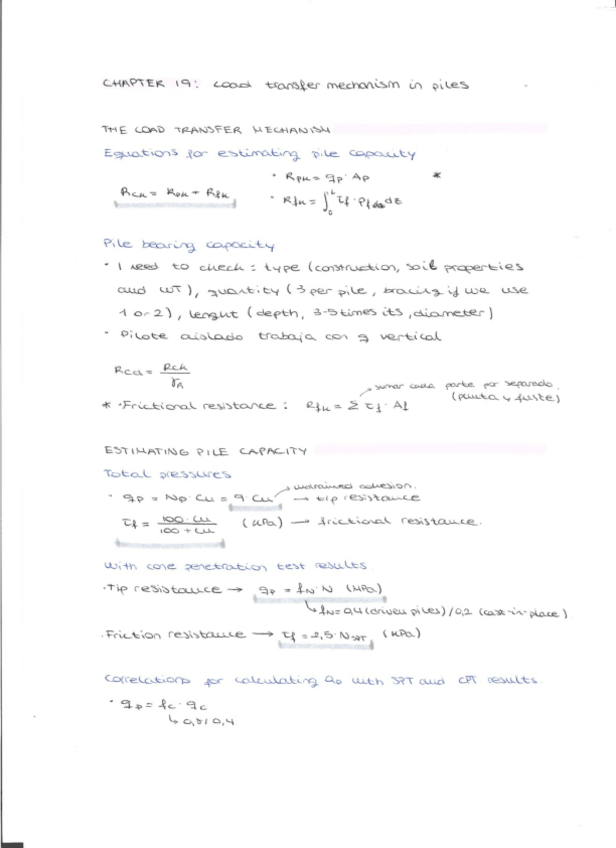 CHAPTER 19: Load transfer mechanism in piles
THE LOAD TRANSFER MECHANISM
Equations for estimating pile capacity
· Rpk = qp · Ap *
Rck = Rpk + Rfk · Rfk = ∫₀ᴸ τf · Pf dz
Pile bearing capacity
· I need to check: type (construction, soil properties
and WT), quantity (3 per pile, bracing if we use
1 or 2), lenght (depth, 3-5 times its, diameter)
· Pilote aislado trabaja con q vertical
Rcd = Rck / γR
sumar cada parte por separado
(punta y fuste)
* · Frictional resistance: Rfk = Σ τf · Af
ESTIMATING PILE CAPACITY
Total pressures
undrained cohesion.
· qp = Np · Cu = 9 · Cu → tip resistance
τf = 100 · Cu / 100 + Cu (kPa) → frictional resistance.
With cone penetration test results
· Tip resistance → qp = fN · N (MPa)
↳ fN = 0,4 (driven piles) / 0,2 (cast-in-place)
· Friction resistance → τf = 2,5 · NSPT (kPa)
Correlations for calculating Qp with SPT and CPT results.
· qp = fc · qc
↳ 0,5 / 0,4